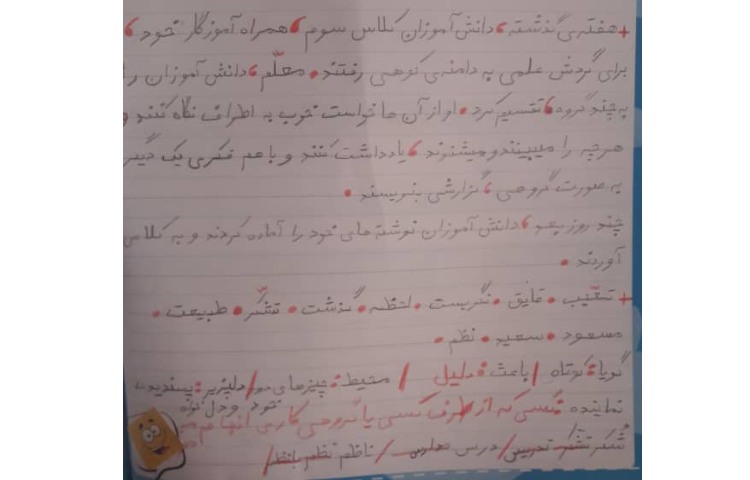 + هفته‌ی گذشته، دانش‌آموزان کلاس سوم، همراه آموزگار خود،
برای گردش علمی به دامنه‌ی کوهی رفتند. معلّم، دانش‌آموزان را
به چند گروه، تقسیم کرد. او از آن ها خواست خوب به اطراف نگاه کنند و
هرچه را میبینند و میشنوند، یادداشت کنند و با هم فکری یک دیگر
به صورت گروهی، گزارشی بنویسند.
چند روز بعد، دانش آموزان نوشته های خود را آماده کردند و به کلاس
آوردند.
+ تعقیب . قایق . نگریست . لحظه . گذشت . تشکّر . طبیعت .
مسعود . سعید . نظم .
گویا: کوتاه / باعث: دلیل / محیط: چیزهای / دلپذیر: پسندیده
نماینده: کسی که از طرف کسی یا گروهی کاری انجام خود و دل‌خواه
تشکر / درس / ناظم نظم